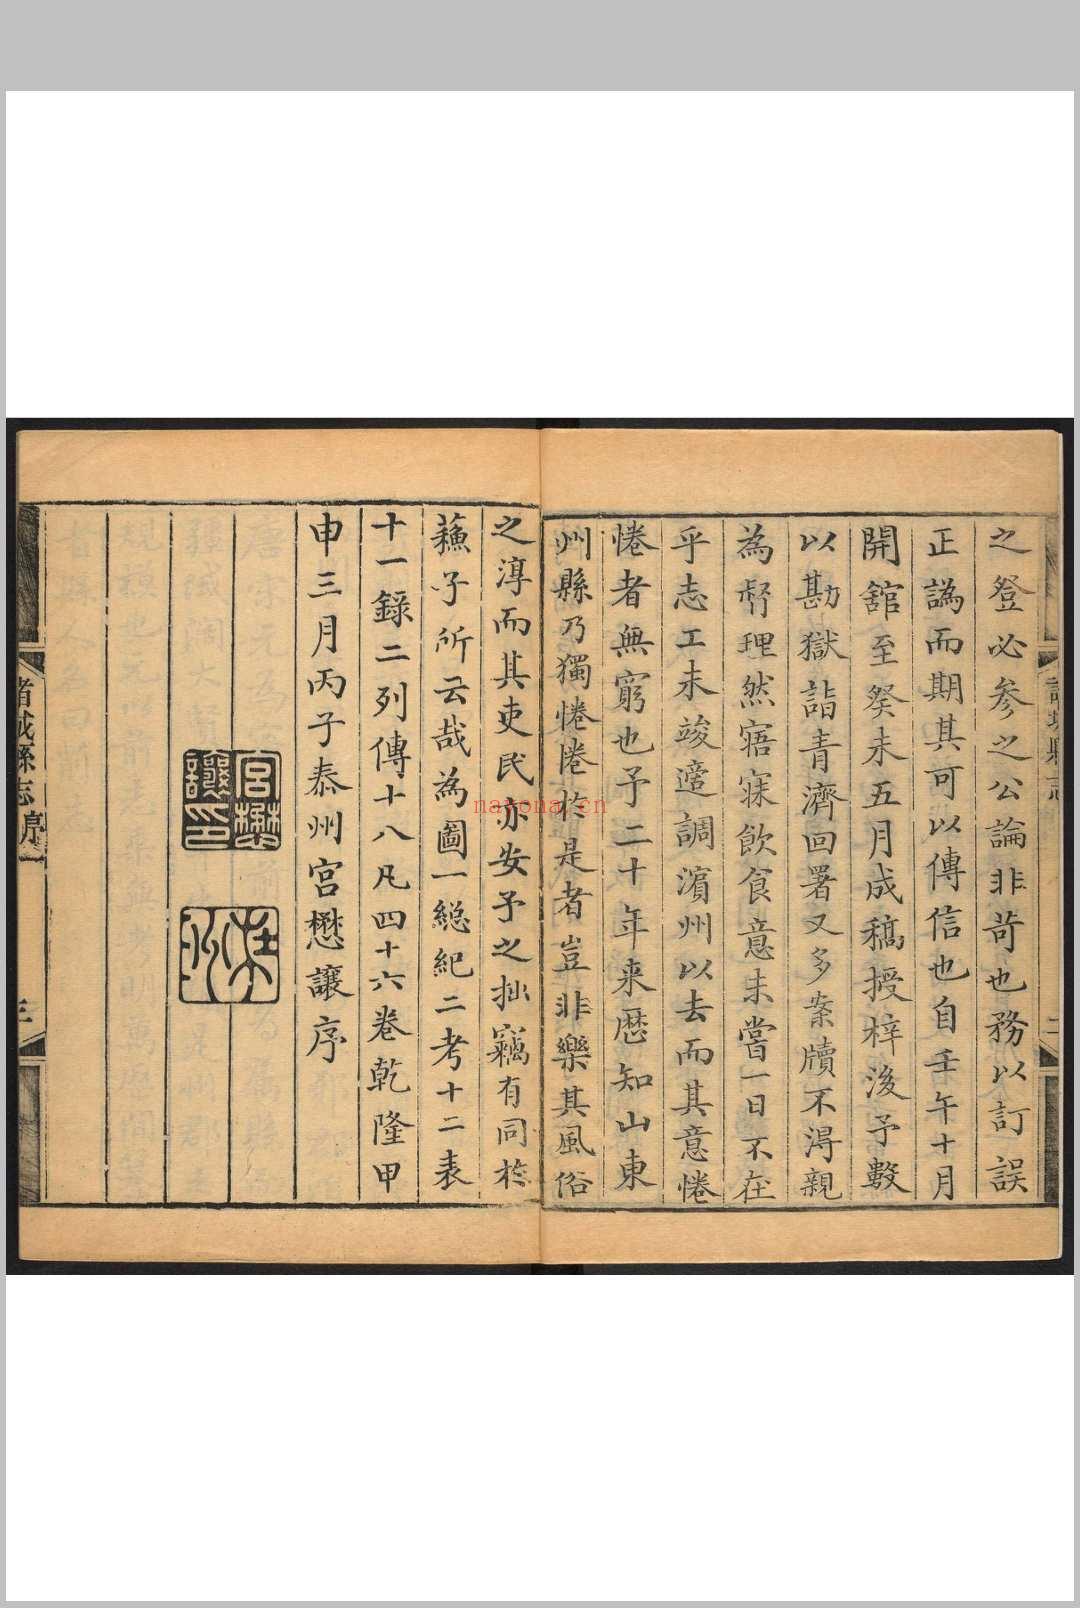 之登必参之公論非苛也務以訂誤
正譌而期其可以傳信也自壬午十月
開舘至癸未五月成稿授梓後予數
以勘獄詣青濟回署又多案牘不淂親
為督理然寤寐飲食意未嘗一日不在
乎志工未竣適調濵州以去而其意惓
惓者無窮也予二十年来歴知山東
州縣乃獨惓惓於是者豈非樂其風俗
之淳而其吏民亦安予之拙竊有同於
蘓子所云哉為圖一緫紀二考十二表
十一錄二列傳十八凡四十六卷乾隆甲
申三月丙子泰州宫懋讓序
宮懋讓印
諸城縣志 序 三
nayona.cn